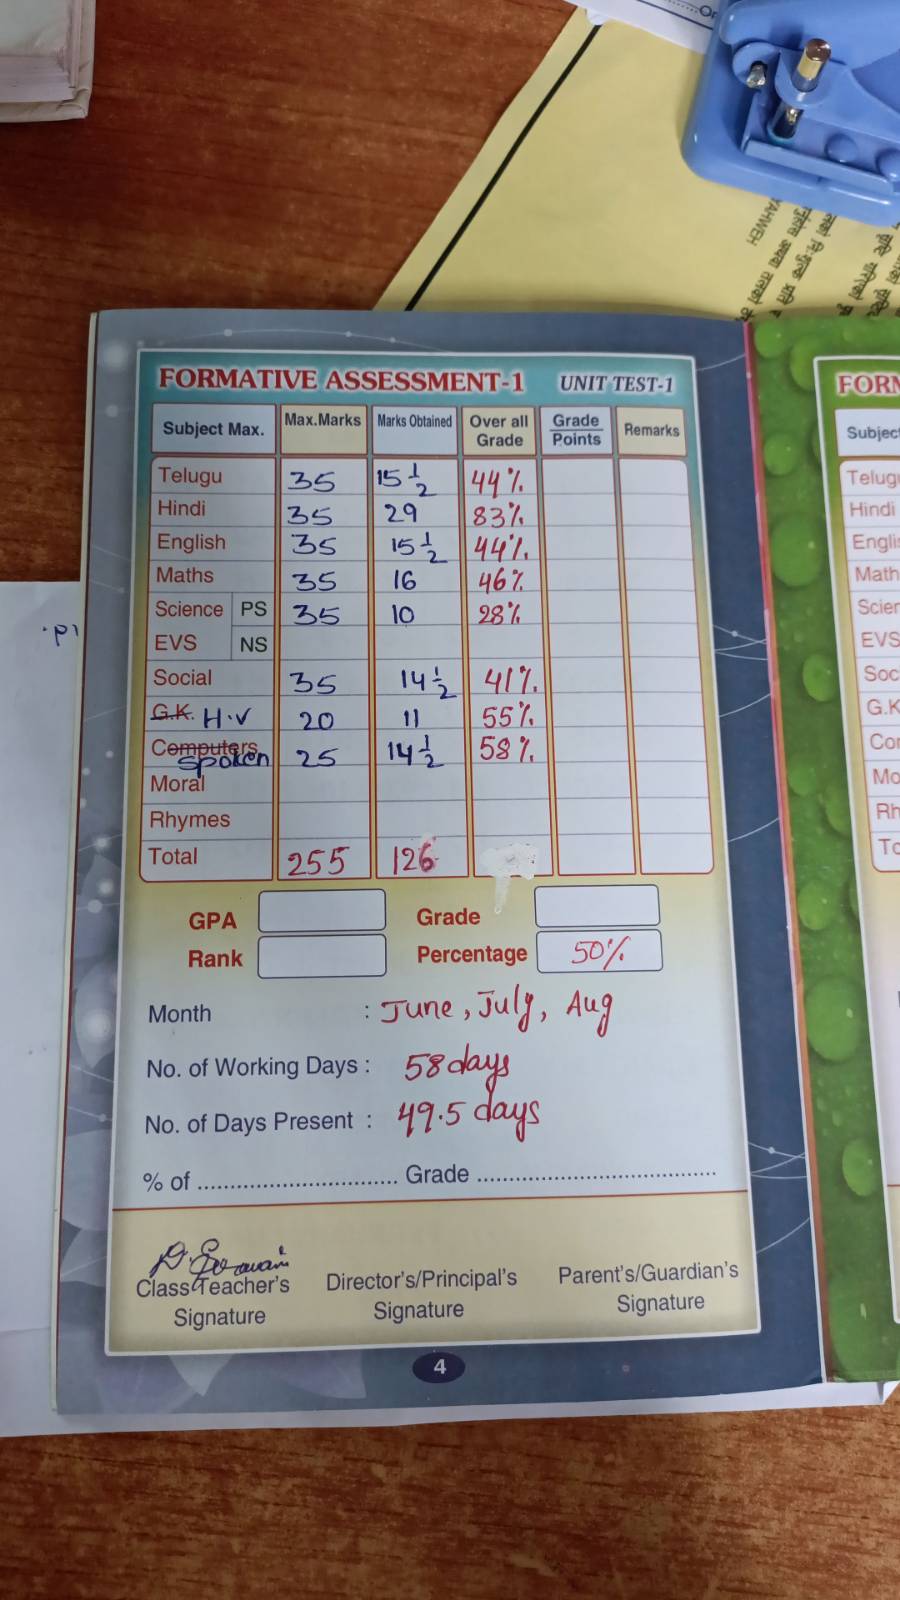 FORMATIVE ASSESSMENT-1 UNIT TEST-1
Subject Max. Max.Marks Marks Obtained Over all Grade Grade Points Remarks
Telugu 35 15 1/2 44%
Hindi 35 29 83%
English 35 15 1/2 44%
Maths 35 16 46%
Science PS 35 10 28%
EVS NS
Social 35 14 1/2 41%
G.K. H.V 20 11 55%
Computers spoken 25 14 1/2 58%
Moral
Rhymes
Total 255 126
GPA Grade
Rank Percentage 50%
Month : June, July, Aug
No. of Working Days : 58 days
No. of Days Present : 49.5 days
% of .............................. Grade ....................................
Class Teacher's Signature
Director's/Principal's Signature
Parent's/Guardian's Signature
4
YAHWEH
FORM
Subject
Telug
Hindi
Englis
Math
Scien
EVS
Soc
G.K
Cor
Mo
Rh
To